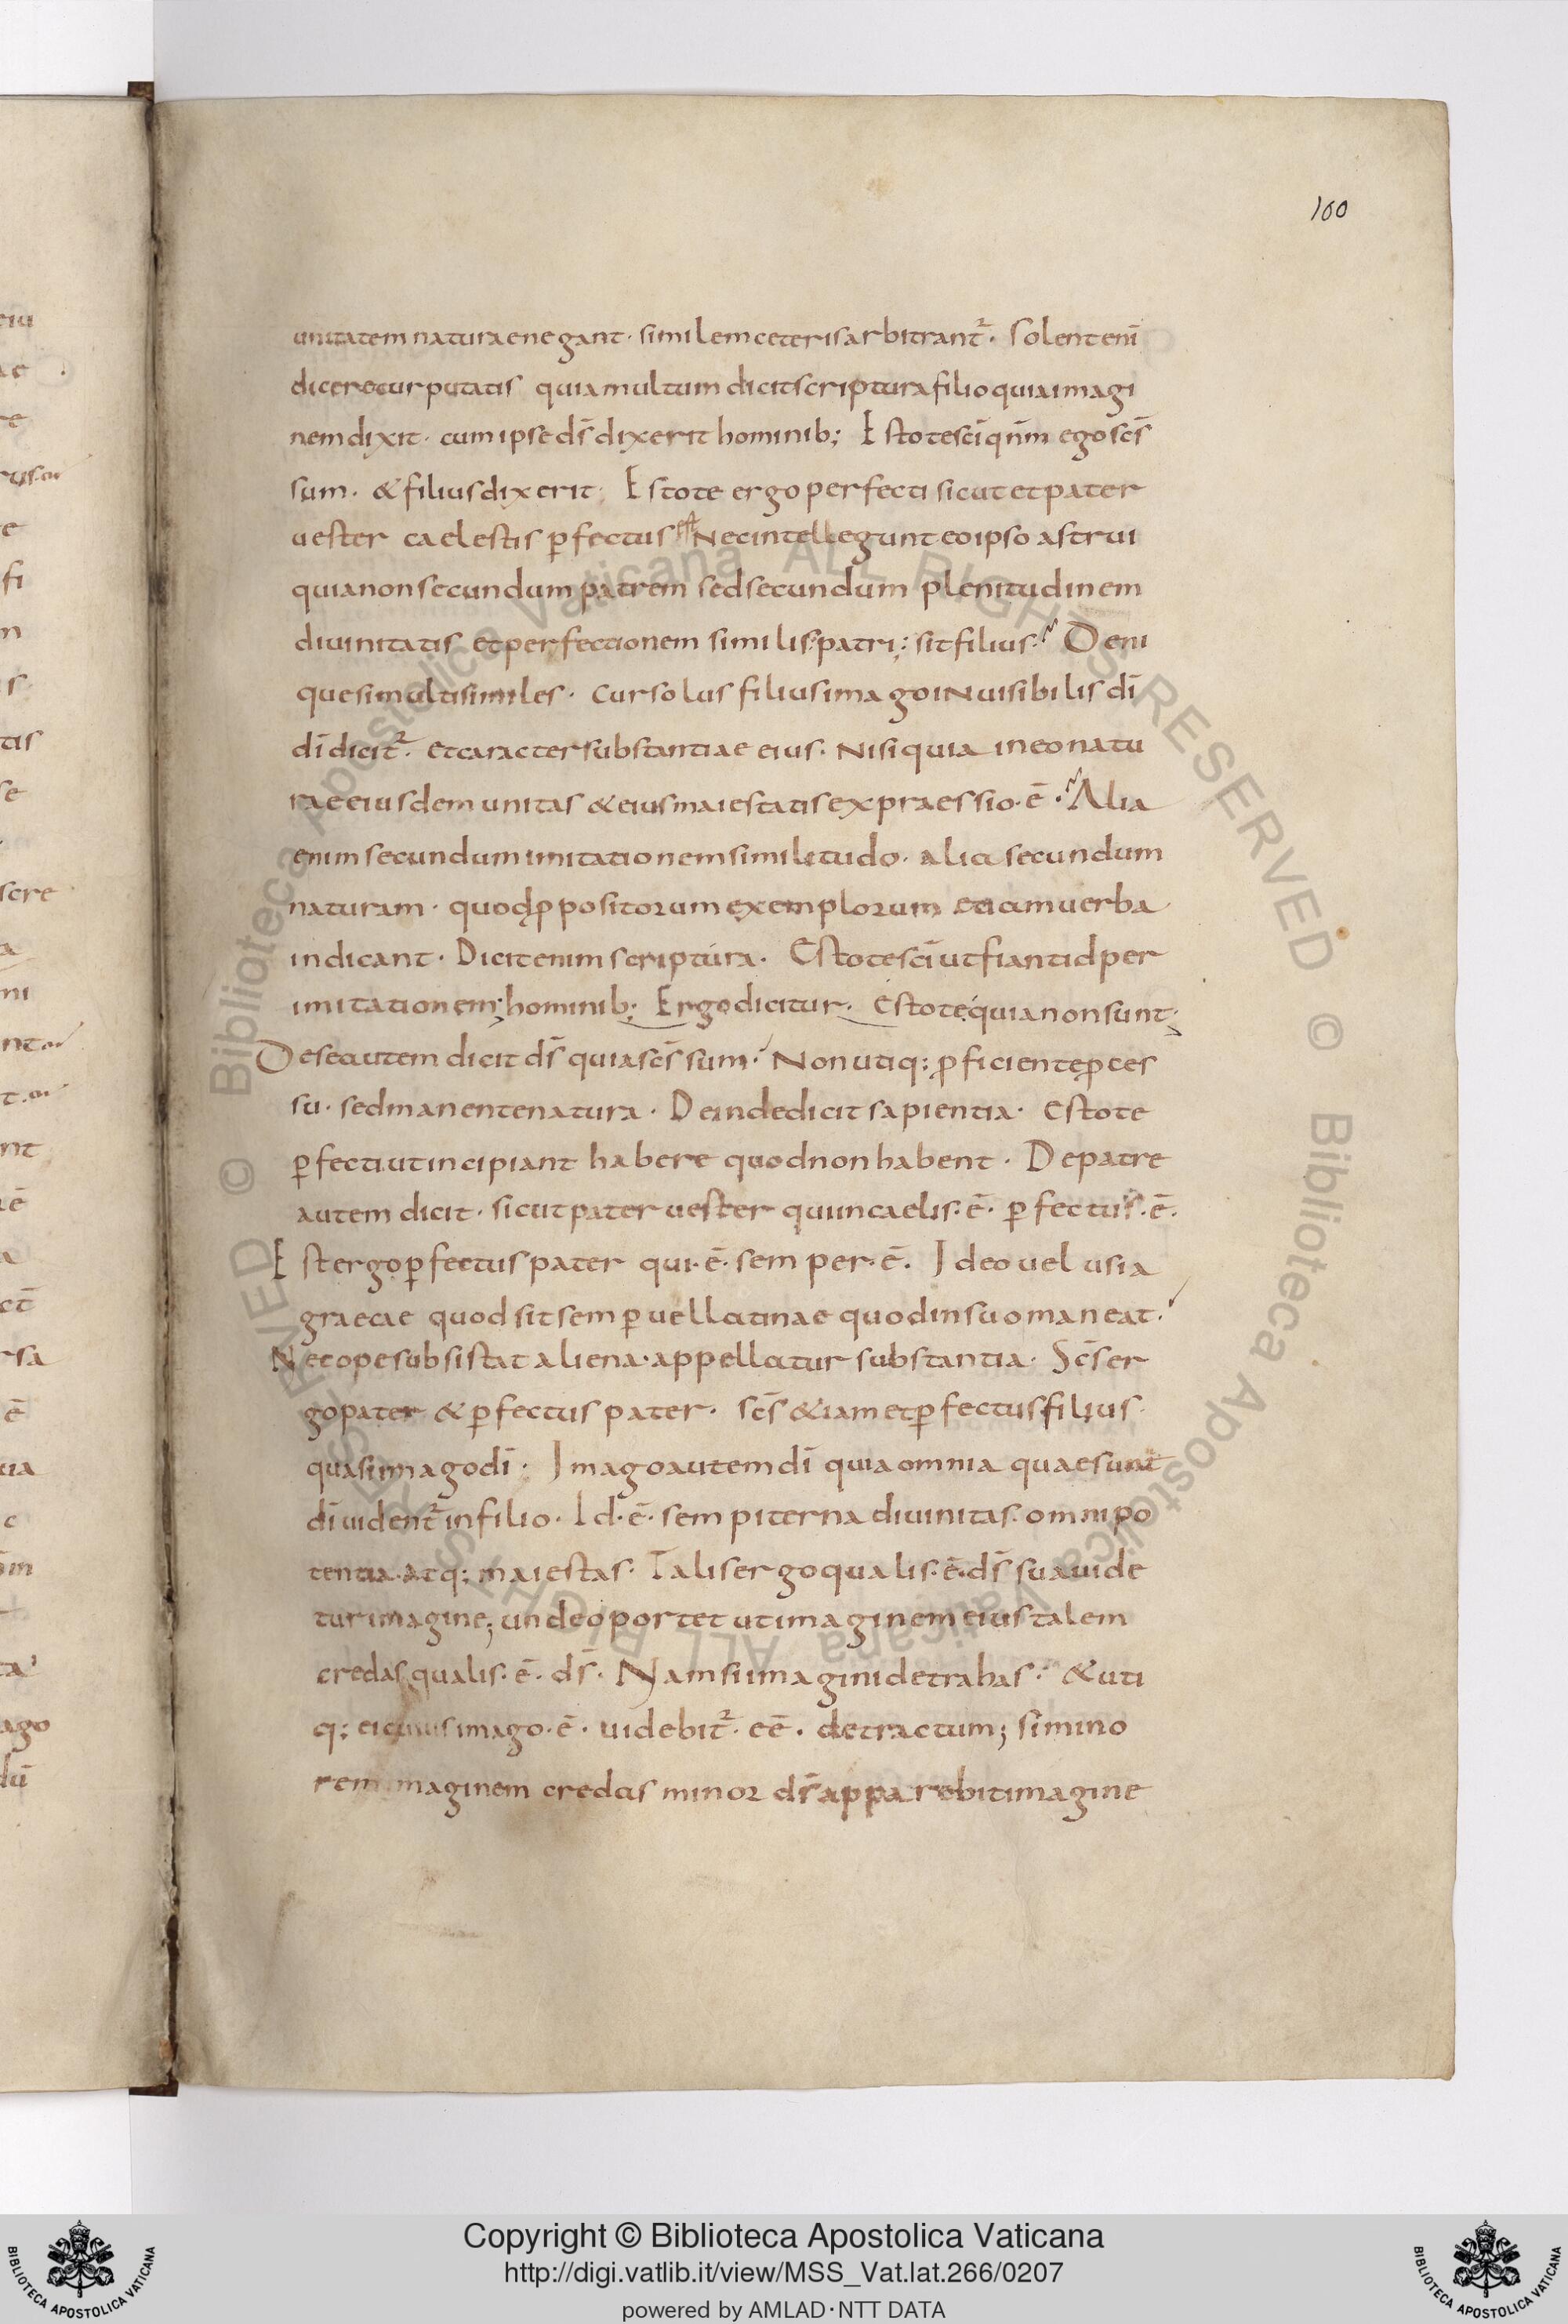 160
unitatem naturae negant · similem ceteris arbitrant̄ · Solent enī
dicere cur putatis quia multum dicit scriptura filio quia imagi
nem dixit · cum ipse ds̄ dixerit hominib; Estote sc̄i qn̄m ego sc̄s
sum · & filius dixerit · Estote ergo perfecti sicut et pater
uester caelestis p̄fectus Nec intellegunt eo ipso astrui
quia non secundum patrem sed secundum plenitudinem
diuinitatis et perfectionem similis patri: sit filius · Deni
que si multi similes · cur solus filius imago inuisibilis dī
dī dicit̄ · et caracter substantiae eius · Nisi quia in eo natu
rae eiusdem unitas & eius maiestatis expraessio · ē · Alia
enim secundum imitationem similitudo · alia secundum
naturam · quod p̄positorum exemplorum etiam uerba
indicant · Dicit enim scriptura · Estote sc̄i ut fiant id per
imitationem; hominib; Ergo dicitur · Estote quia non sunt ·
De se autem dicit ds̄ quia sc̄s sum · Non utiq: p̄ficiente p̄ces
su · sed manente natura · Deinde dicit sapientia · Estote
p̄fecti ut incipiant habere quod non habent · De patre
autem dicit · sicut pater uester qui in caelis · ē · p̄fectus · ē ·
Est ergo p̄fectus pater qui · ē · semper · ē · Ideo uel usia
graece quod sit semp̄ uel latinae quod in suo maneat ·
Nec ope subsistat aliena · appellatur substantia · Sc̄s er
go pater & p̄fectus pater · sc̄s &iam et p̄fectus filius
quasi imago dī · Imago autem dī quia omnia quae sunt
dī uident̄ in filio · Id · ē · sempiterna diuinitas · omnipo
tentia · atq: maiestas · Talis ergo qualis · ē · ds̄ sua uide
tur imagine; unde oportet ut imaginem eius talem
credas qualis · ē · ds̄ · Nam si imagini detrahas · & uti
q: ei cuius imago · ē · uidebit̄ · eē · detractum; si mino
rem imaginem credas minor ds̄ apparebit imagine
© Biblioteca Apostolica Vaticana ALL RIGHTS RESERVED © Biblioteca Apostolica Vaticana ALL RIGHTS RESERVED
Copyright © Biblioteca Apostolica Vaticana
http://digi.vatlib.it/view/MSS_Vat.lat.266/0207
powered by AMLAD·NTT DATA
BIBLIOTECA APOSTOLICA VATICANA
BIBLIOTECA APOSTOLICA VATICANA